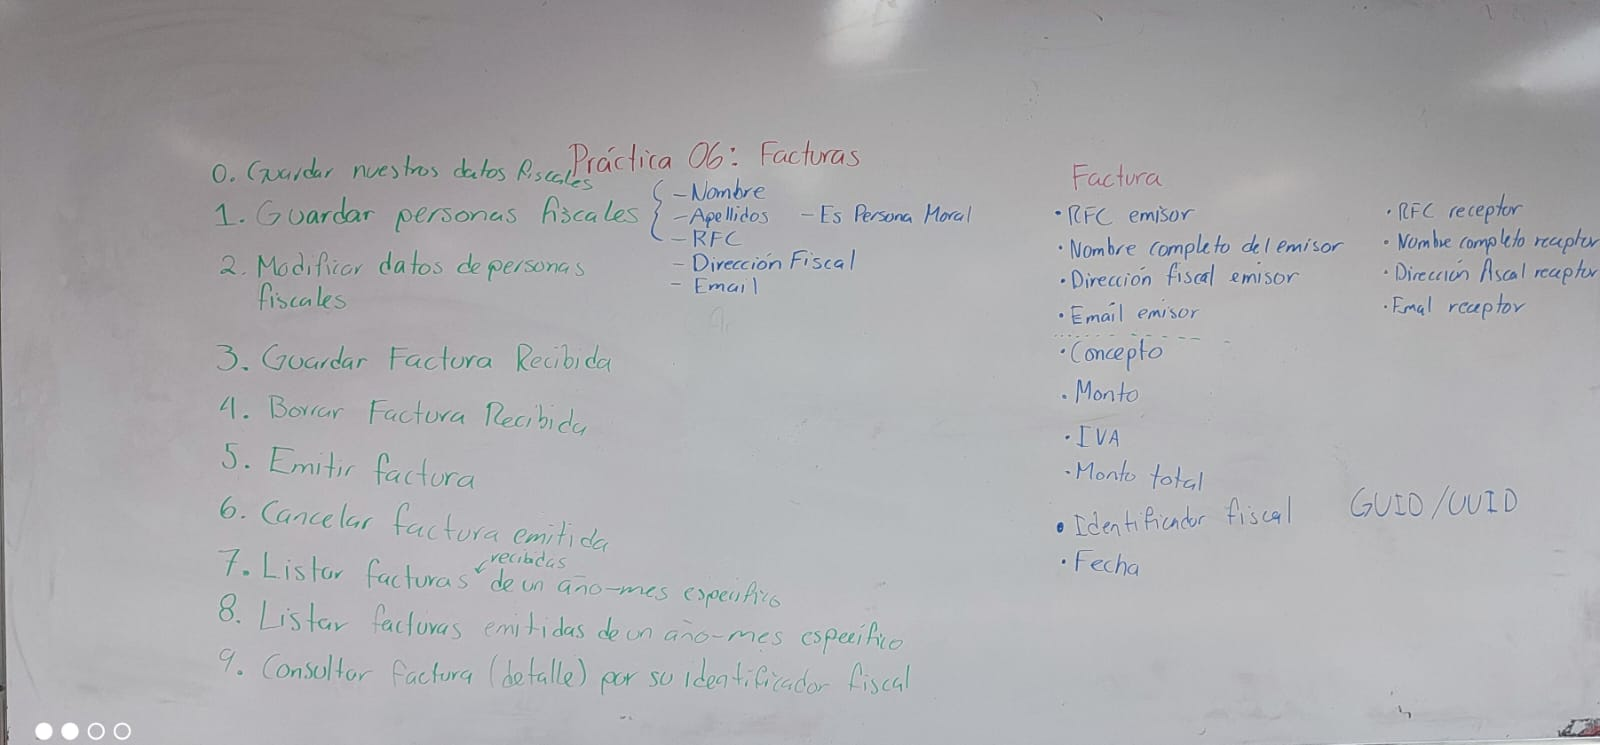 Práctica 06: Facturas
0. Guardar nuestros datos fiscales
1. Guardar personas fiscales
- Nombre
- Apellidos - Es Persona Moral
- RFC
- Dirección Fiscal
- Email
2. Modificar datos de personas
fiscales
3. Guardar Factura Recibida
4. Borrar Factura Recibida
5. Emitir factura
6. Cancelar factura emitida
7. Listar facturas recibidas de un año-mes específico
8. Listar facturas emitidas de un año-mes específico
9. Consultar factura (detalle) por su identificador fiscal
Factura
· RFC emisor
· Nombre completo del emisor
· Dirección fiscal emisor
· Email emisor
· Concepto
· Monto
· IVA
· Monto total
· Identificador fiscal GUID/UUID
· Fecha
· RFC receptor
· Nombre completo receptor
· Dirección fiscal receptor
· Emal receptor